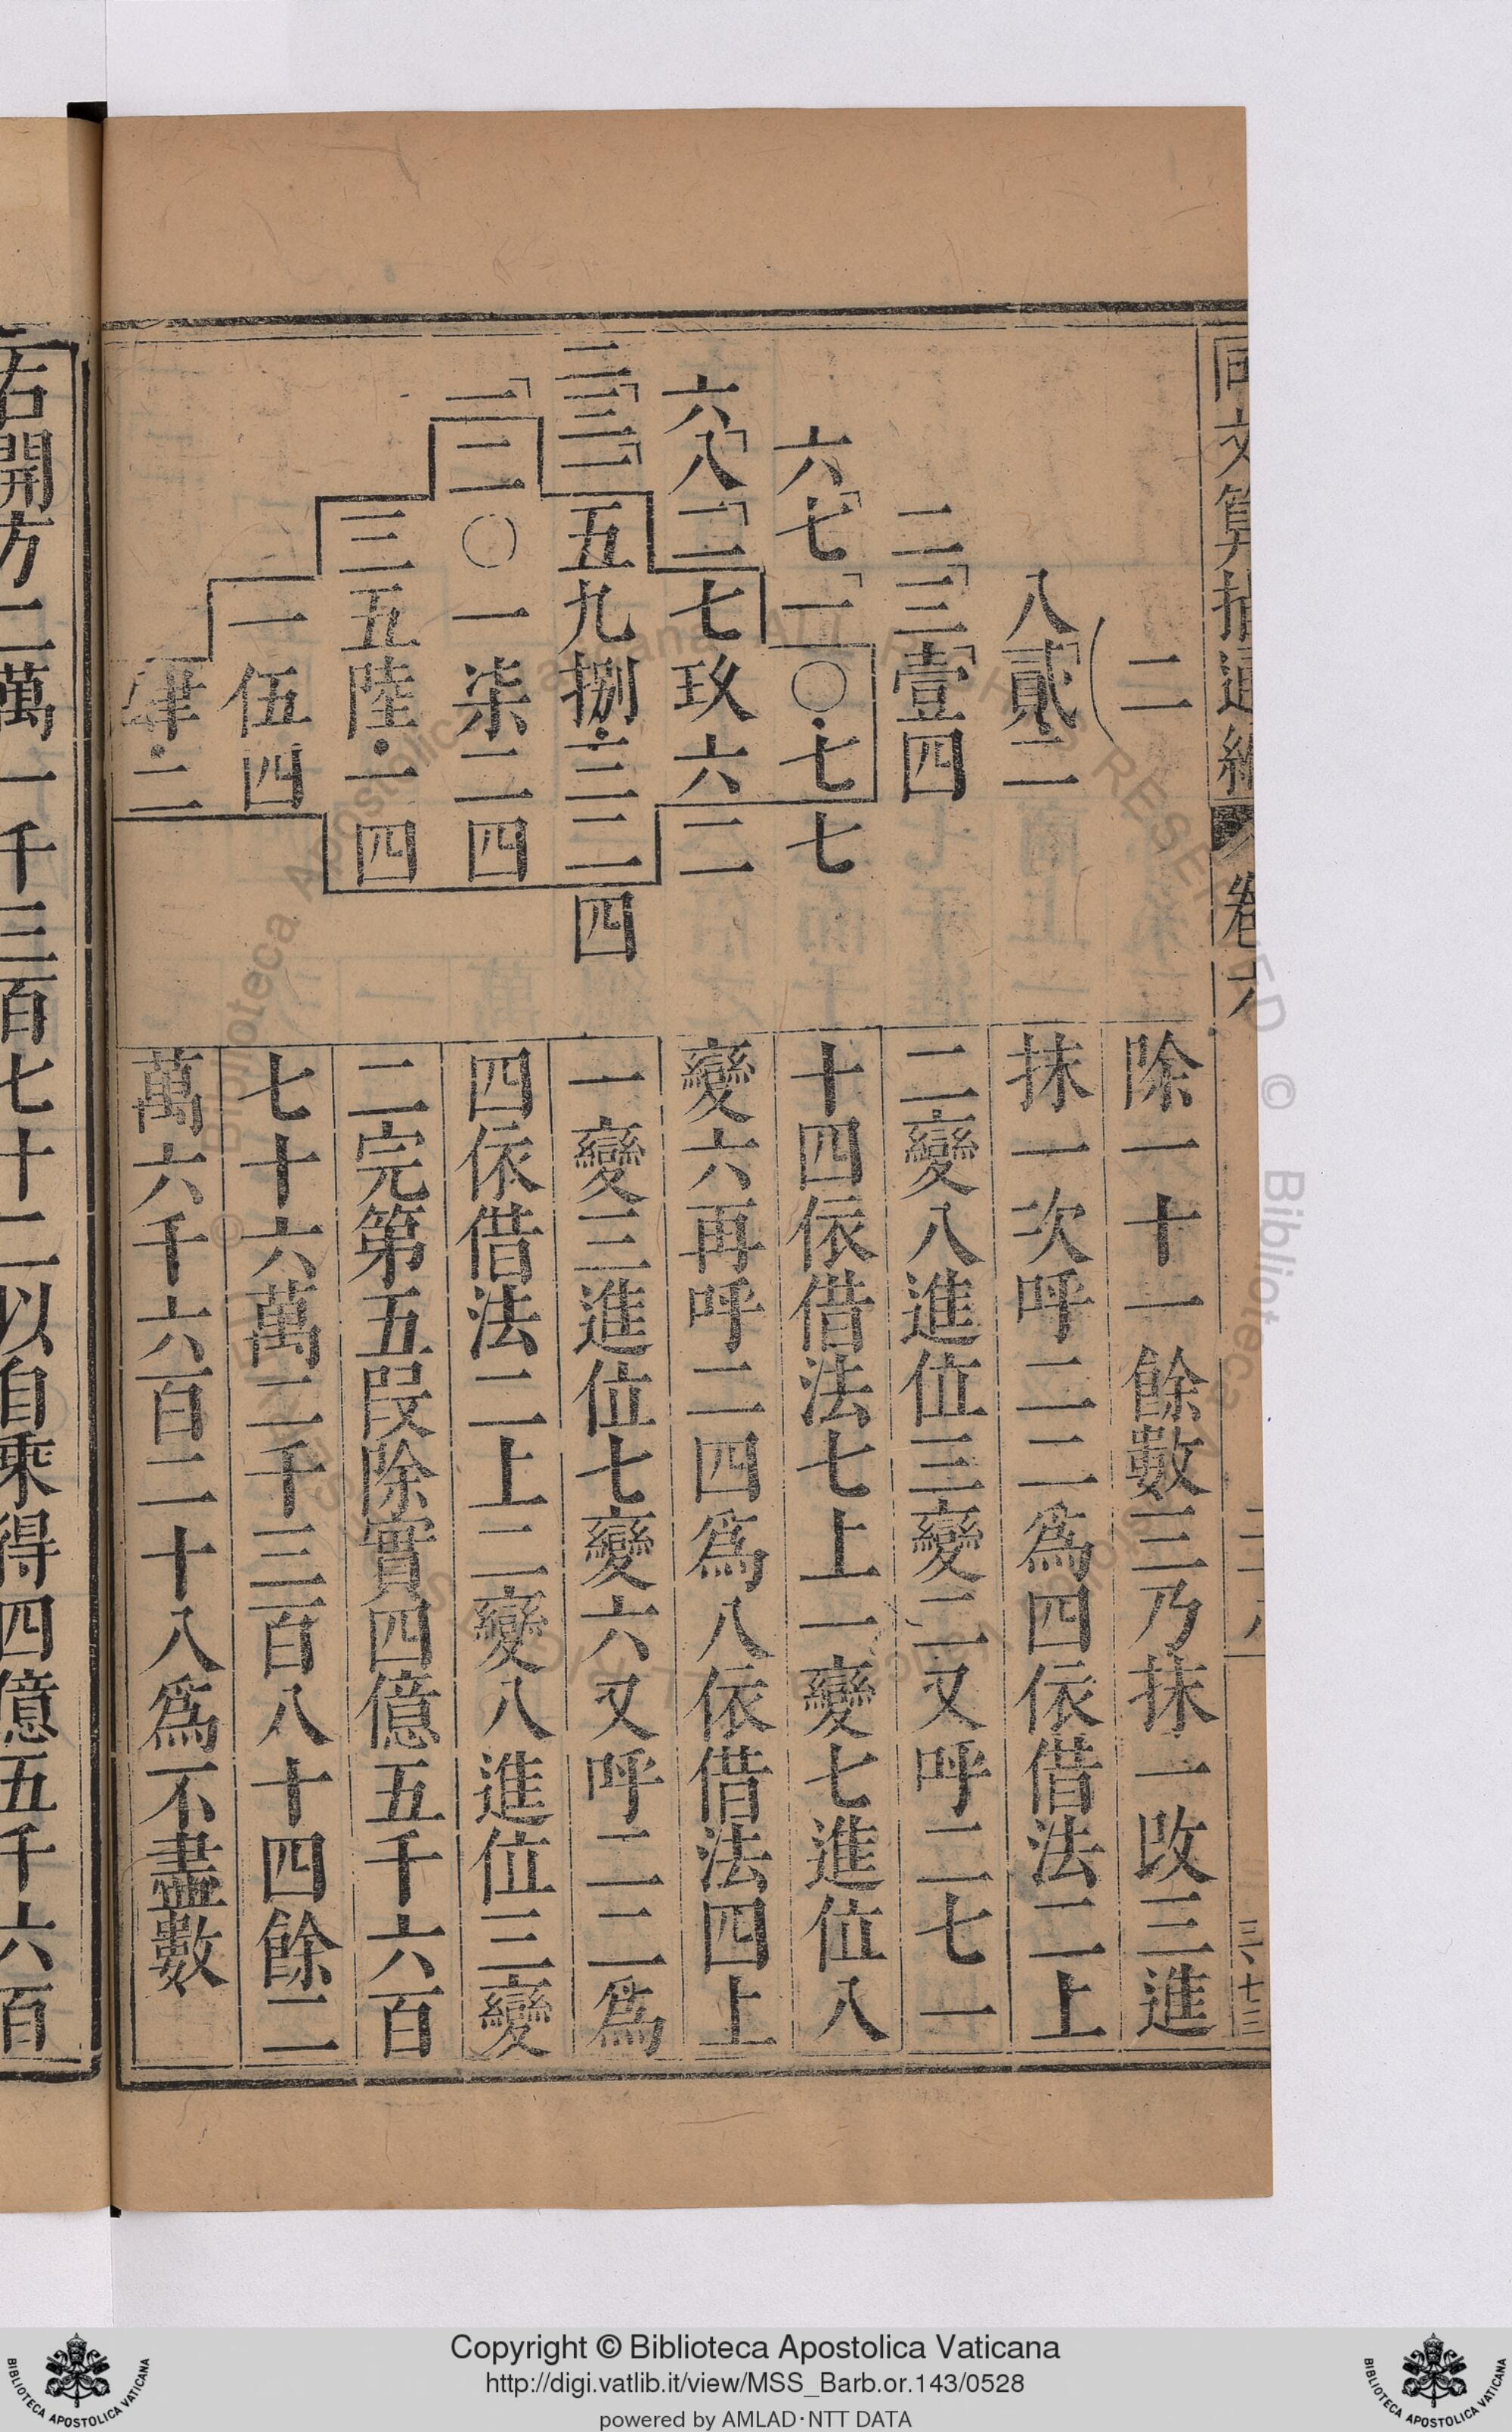 同文算指通編
卷六
三、七三
二
八貳二
二三壹四
六七一〇七七
六八二七玖六二
三三一五九捌三二四
一三〇一柒二四
三五陸一四
一伍四
肆二
除一十一餘數三乃抹一改三進
抹一次呼二二爲四依借法二上
二變八進位三變二又呼二七一
十四依借法七上一變七進位八
變六再呼二四爲八依借法四上
一變三進位七變六又呼二二爲
四依借法二上二變八進位三變
二完第五段除實四億五千六百
七十六萬二千三百八十四餘二
萬六千六百二十八爲不盡數
右開方二萬一千三百七十二以自乘得四億五千六百
Copyright © Biblioteca Apostolica Vaticana
http://digi.vatlib.it/view/MSS_Barb.or.143/0528
powered by AMLAD·NTT DATA
BIBLIOTECA APOSTOLICA VATICANA
BIBLIOTECA APOSTOLICA VATICANA